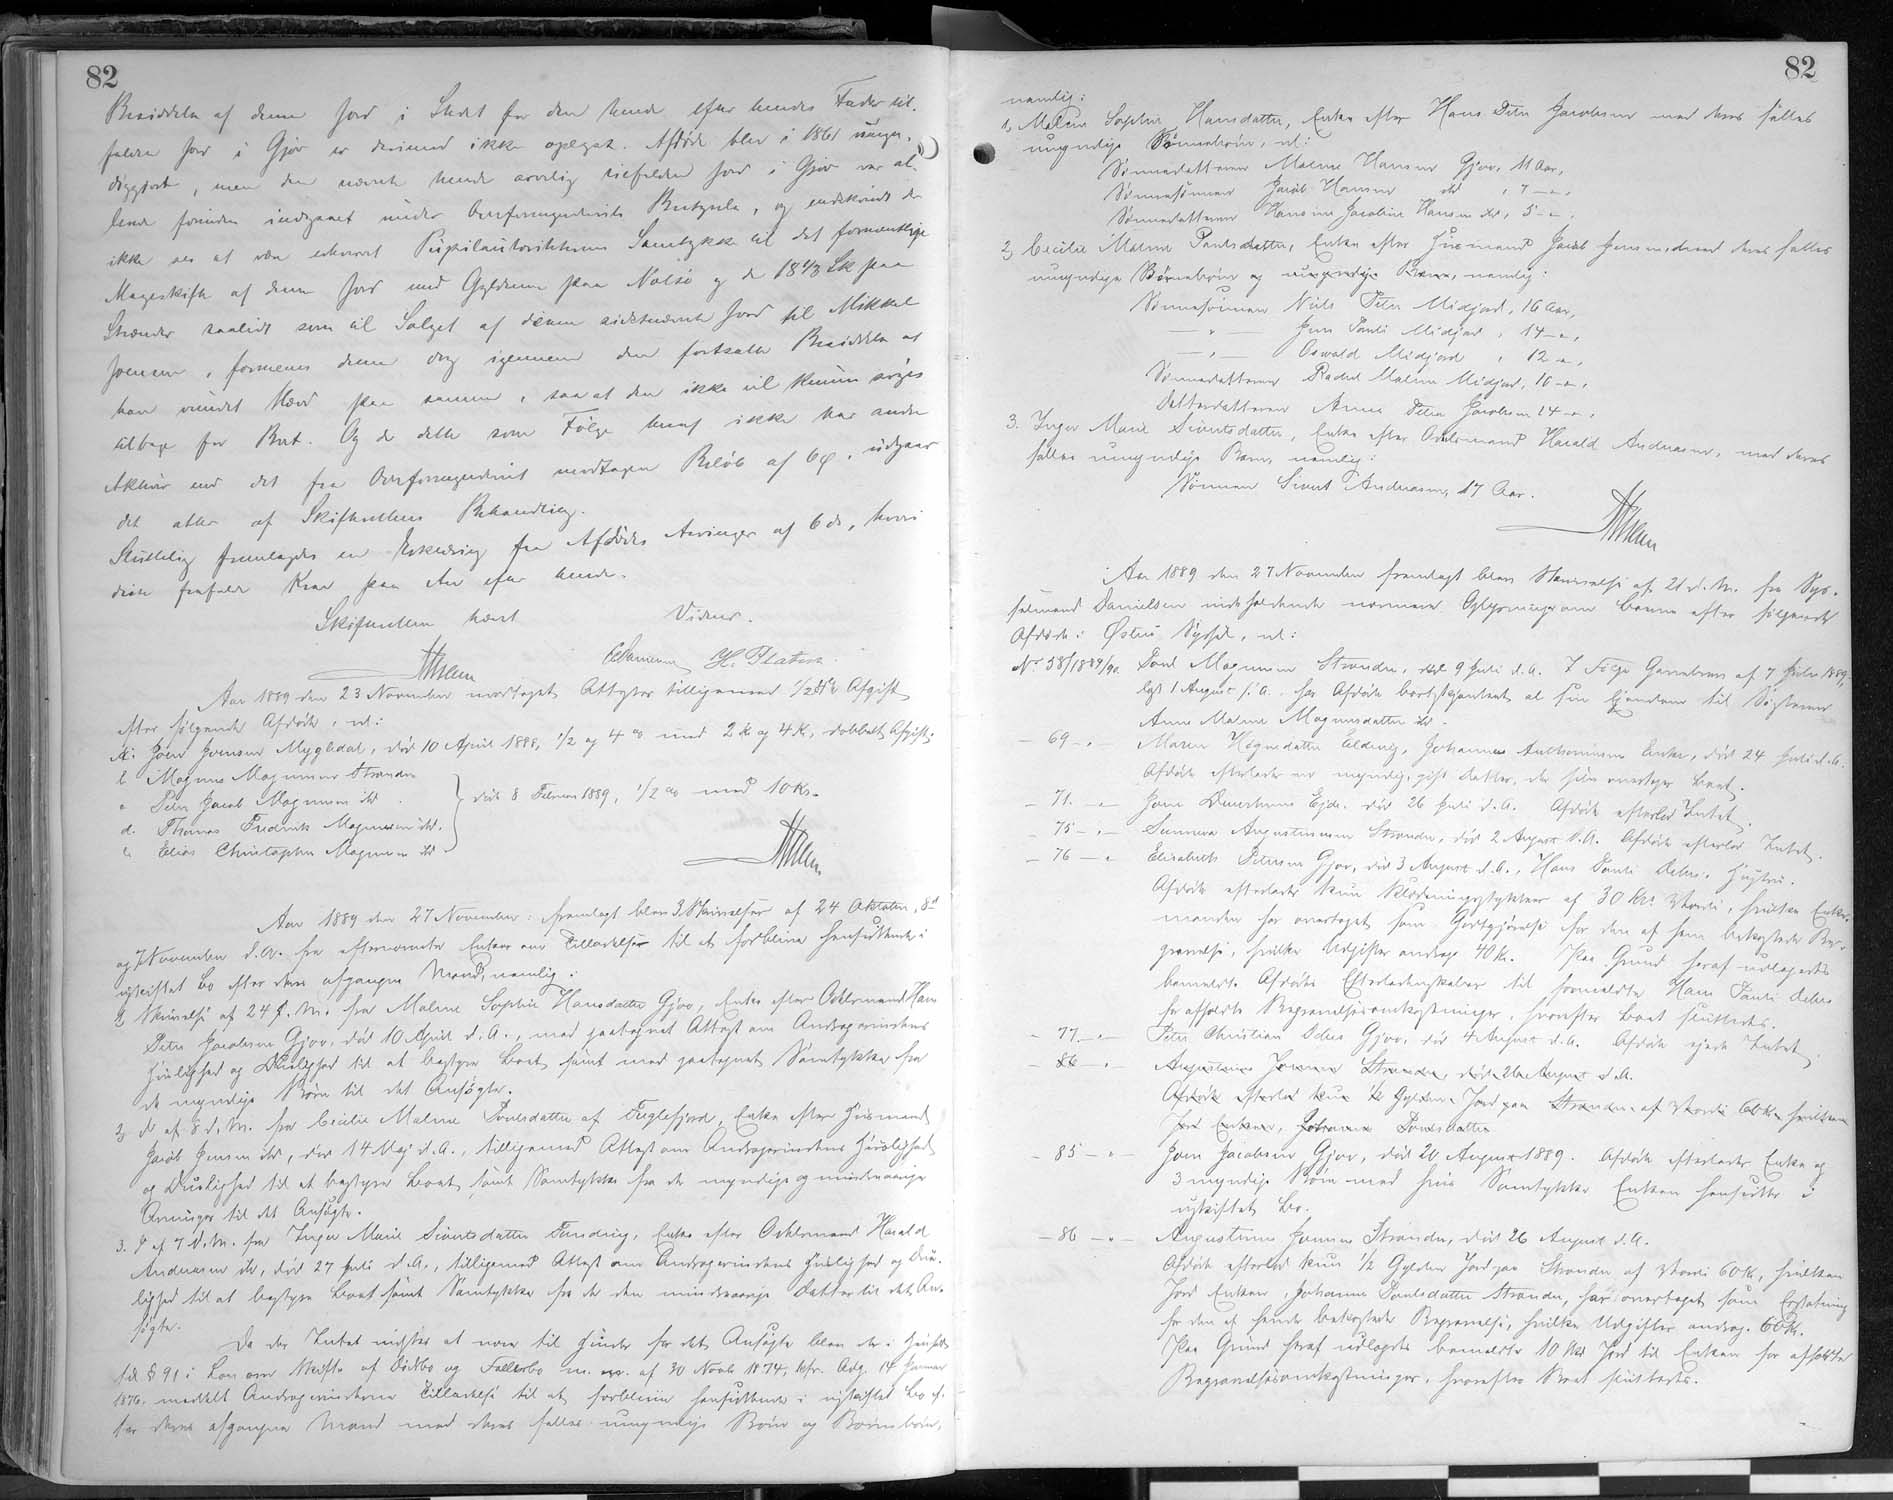 82
Besiddelse af denne Jord i Stedet for den hende efter hendes Fader til-
faldne Jord i Gjov er derimod ikke oplyst. Afdøde blev i 1861 umyn-
diggjort, men den nævnte hende arvelig tilfaldne Jord i Gjov var al-
lerede forinden under Overformynderiets Bestyrelse, og endskiønt der
ikke ses at være erhvervet Pupilautoriteternes Samtykke til det formentlige
Mageskifte af denne Jord med Gyldenen paa Nolsø og de 18 4/3 Sk paa
Strænder saalidt som til Salget af denne sidstnævnte Jord til Mikkel
Joensen, formenes denne dog igjennem den fortsatte Besiddelse at
have vundet Hævd paa samme, saa at den ikke vil kunne søges
tilbage for Boet. Og da dette som Følge heraf ikke har andre
Aktiver end det fra Overformynderiet modtagne Beløb af 6 , udgaar
det atter af Skifterettens Behandling.
Sluttelig fremlagdes en Erklæring fra Afdødes Arvinger af 6 ds, hvori
disse frafalde Krav paa Arv efter hende.
Skifteretten hævet Vidner.
H. Platou
Aar 1889 den 23 November modtaget Attester tilligemed 1/2 % Afgift
efter følgende Afdøde, nl:
a. Joen Joensen Mygledal, død 10 April 1888, 1/2 og 4 % med 2 K og 4 K, dobbelt Afgift.
b Magnus Magnussen Strænder
c Peter Jacob Magnussen ibd.
d. Thomas Fredrik Magnussen ibd.
e. Elias Christopher Magnussen ibd
døde 8 Februar 1889, 1/2 % med 10 Kr.
Aar 1889 den 27 November fremlagt blev 3 Skrivelser af 24 Oktober, 8de
og 7 November d.A. fra efternævnte Enker om Tilladelse til at forblive hensiddende i
uskiftet Bo efter deres afgangne Mænd, nemlig:
1, Skrivelse af 24 f. M. fra Malene Sophie Hansdatter Gjov, Enke efter Odelsmand Hans
Peter Jacobsen Gjov, død 10 April d.A., med paategnet Attest om Andragerindens
Huslighed og Duelighed til at bestyre Boet samt med paategnet Samtykke fra
de myndige Børn til det Ansøgte.
2, do af 8 d.M. fra Cecilie Malene Poulsdatter af Fuglefjord, Enke efter Husmand
Jacob Jensen ibd, død 14 Maj d.A., tilligemed Attest om Andragerindens Huslighed
og Duelighed til at bestyre Boet samt Samtykke fra de myndige og mindreaarige
Arvinger til det Ansøgte.
3. do af 7 d.M. fra Inger Marie Sivertsdatter Funding, Enke efter Odelsmand Harald
Andreasen ibd, død 27 Juli d.A., tilligemed Attest om Andragerindens Huslighed og Due-
lighed til at bestyre Boet samt Samtykke fra de den mindreaarige Datter til det An-
søgte.
Da der Intet vidstes at være til Hinder for det Ansøgte blev der i Henhold
til § 91 i Lov om Skifte af Dødsbo og Fællesbo m. m. af 30 Novb 1874, kfr. Adg. 14 Januar
1876 meddelt Andragerinderne Tilladelse til at forblive hensiddende i uskiftet Bo ef-
ter deres afgangne Mænd med deres fælles umyndige Børn og Børnebørn,
82
nemlig:
1, Malene Sophie Hansdatter, Enke efter Hans Peter Jacobsen med deres fælles
umyndige Børnebørn, nl:
Sønnedatteren Malene Hansen Gjov, 11 Aar,
Sønnesønnen Jacob Hansen ibd, 7 — " ,
Sønnedatteren Hansine Jacobine Hansen ibd, 5 — " .
2, Cecilie Malene Poulsdatter, Enke efter Husmand Jacob Jensen, med deres fælles
umyndige Børnebørn og umyndige Børn, nemlig:
Sønnesønnen Niels Peter Midjord, 16 Aar,
— " — Jens Pauli Midjord, 14 — " ,
— " — Oswald Midjord, 12 — " ,
Sønnedatteren Rachel Malene Midjord, 10 — " ,
Datterdatteren Anna Petra Jacobsen 14 — " .
3. Inger Marie Sivertsdatter, Enke efter Odelsmand Harald Andreasen, med deres
fælles umyndige Barn, nemlig:
Sønnen Sivert Andreasen, 17 Aar.
Aar 1889 den 27 November fremlagt blev Skrivelse af 21 d.M. fra Sys-
selmand Danielsen indeholdende nærmere Oplysninger om Boerne efter følgende
Afdøde i Østerø Syssel, nl:
No 58/1889/90. Poul Magnussen Strænder, død 9 Juli d.A. Ifølge Gavebrev af 7 Juli 1889,
lyst 1 August s.A. har Afdøde bortskjænket al sin Ejendom til Søsteren
Anna Malene Magnusdatter ibd.
— 69 — " — Maren Høgnedatter Elding, Johannes Anthoniussens Enke, død 24 Juli d.A.
Afdøde efterlader en myndig, gift Datter, der selv overtager Boet.
— 71. — " Jens Ejde, død 26 Juli d.A. Afdøde efterlod Intet.
— 75 — " — Sunneva Augustinussen Strænder, død 2 August d.A. Afdøde efterlod Intet.
— 76 — " Elisabeth Petersen Gjov, død 3 August d.A., Hans Pauli Debes Hustru.
Afdøde efterlader kun Klædningsstykker af 30 Krs Værdi, hvilke Enke-
manden har overtaget som Godtgjørelse for den af ham bekostede Be-
gravelse, hvilke Udgifter androge 40 Kr. Paa Grund heraf udlagdes
bemeldte Afdødes Efterladenskaber til formeldte Hans Pauli Debes
for afholdte Begravelsesomkostninger, hvorefter Boet sluttedes.
— 77 — " — Peter Christian Debes Gjov, død 4 August d.A. Afdøde ejede Intet.
— 86 — " — Augustinus Joensen Strænder, død 26 August d.A.
Afdøde efterlod kun 1/2 Gylden Jord paa Strænder af Værdi 60 Kr, hvilken
Jord Enken, Johanna Poulsdatter
— 85 — " — Joen Jacobsen Gjov, død 20 August 1889. Afdøde efterlader Enke og
3 myndige Børn med hvis Samtykke Enken hensidder i
uskiftet Bo.
— 86 — " — Augustinus Joensen Strænder, død 26 August d.A.
Afdøde efterlod kun 1/2 Gylden Jord paa Strænder af Værdi 60 Kr, hvilken
Jord Enken, Johanna Poulsdatter Strænder, har overtaget som Erstatning
for den af hende bekostede Begravelse, hvilke Udgifter androg 60 Kr.
Paa Grund heraf udlagdes bemeldte 10 Jord til Enken for afholdte
Begravelsesomkostninger, hvorefter Boet sluttedes.